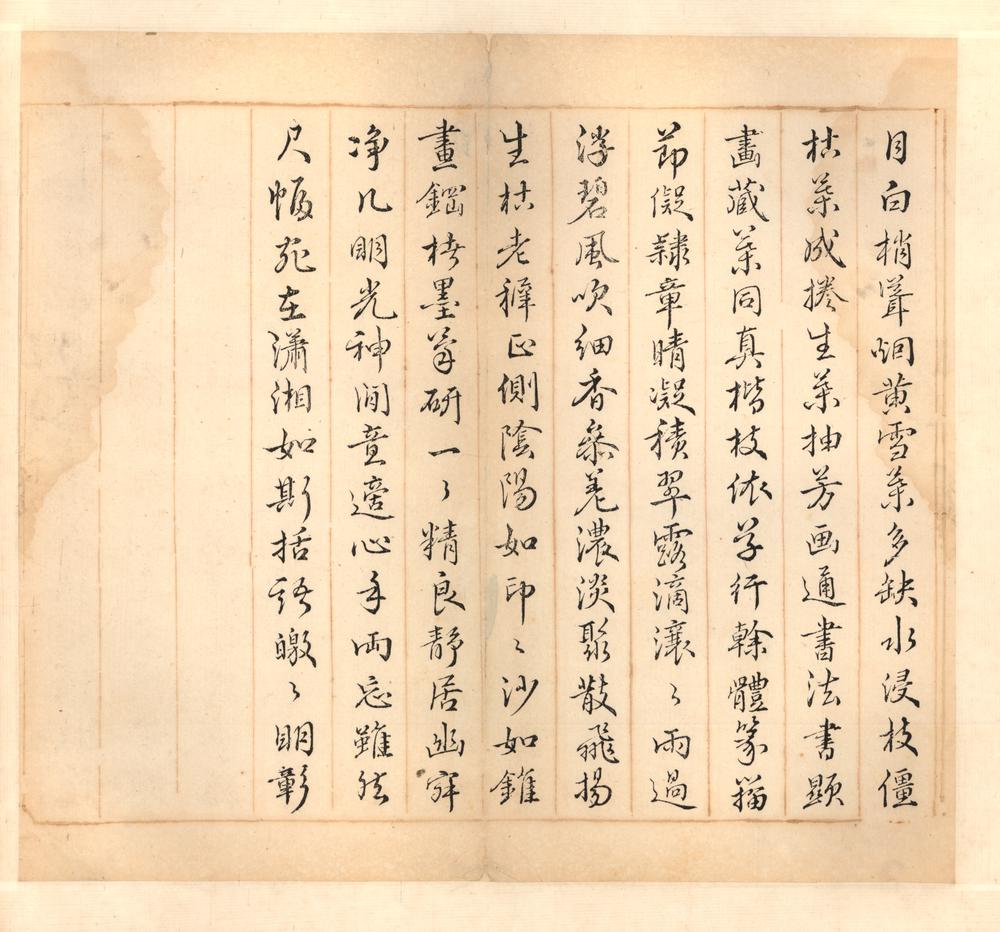 目白梢聳烟黄雪葉多缺水浸枝僵
枯葉成捲生葉抽芳画通書法書顯
畫藏葉同真楷枝依草行幹體篆籀
節儗隷章晴凝積翠露滴瀼〻雨過
浮碧風吹細香參差濃淡聚散飛揚
生枯老穉正側陰陽如印〻沙如錐
畫鋼楮墨筆研一〻精良静居幽寂
净几明光神閒意適心手兩忘雖然
尺幅宛在瀟湘如斯括語皦〻明彰